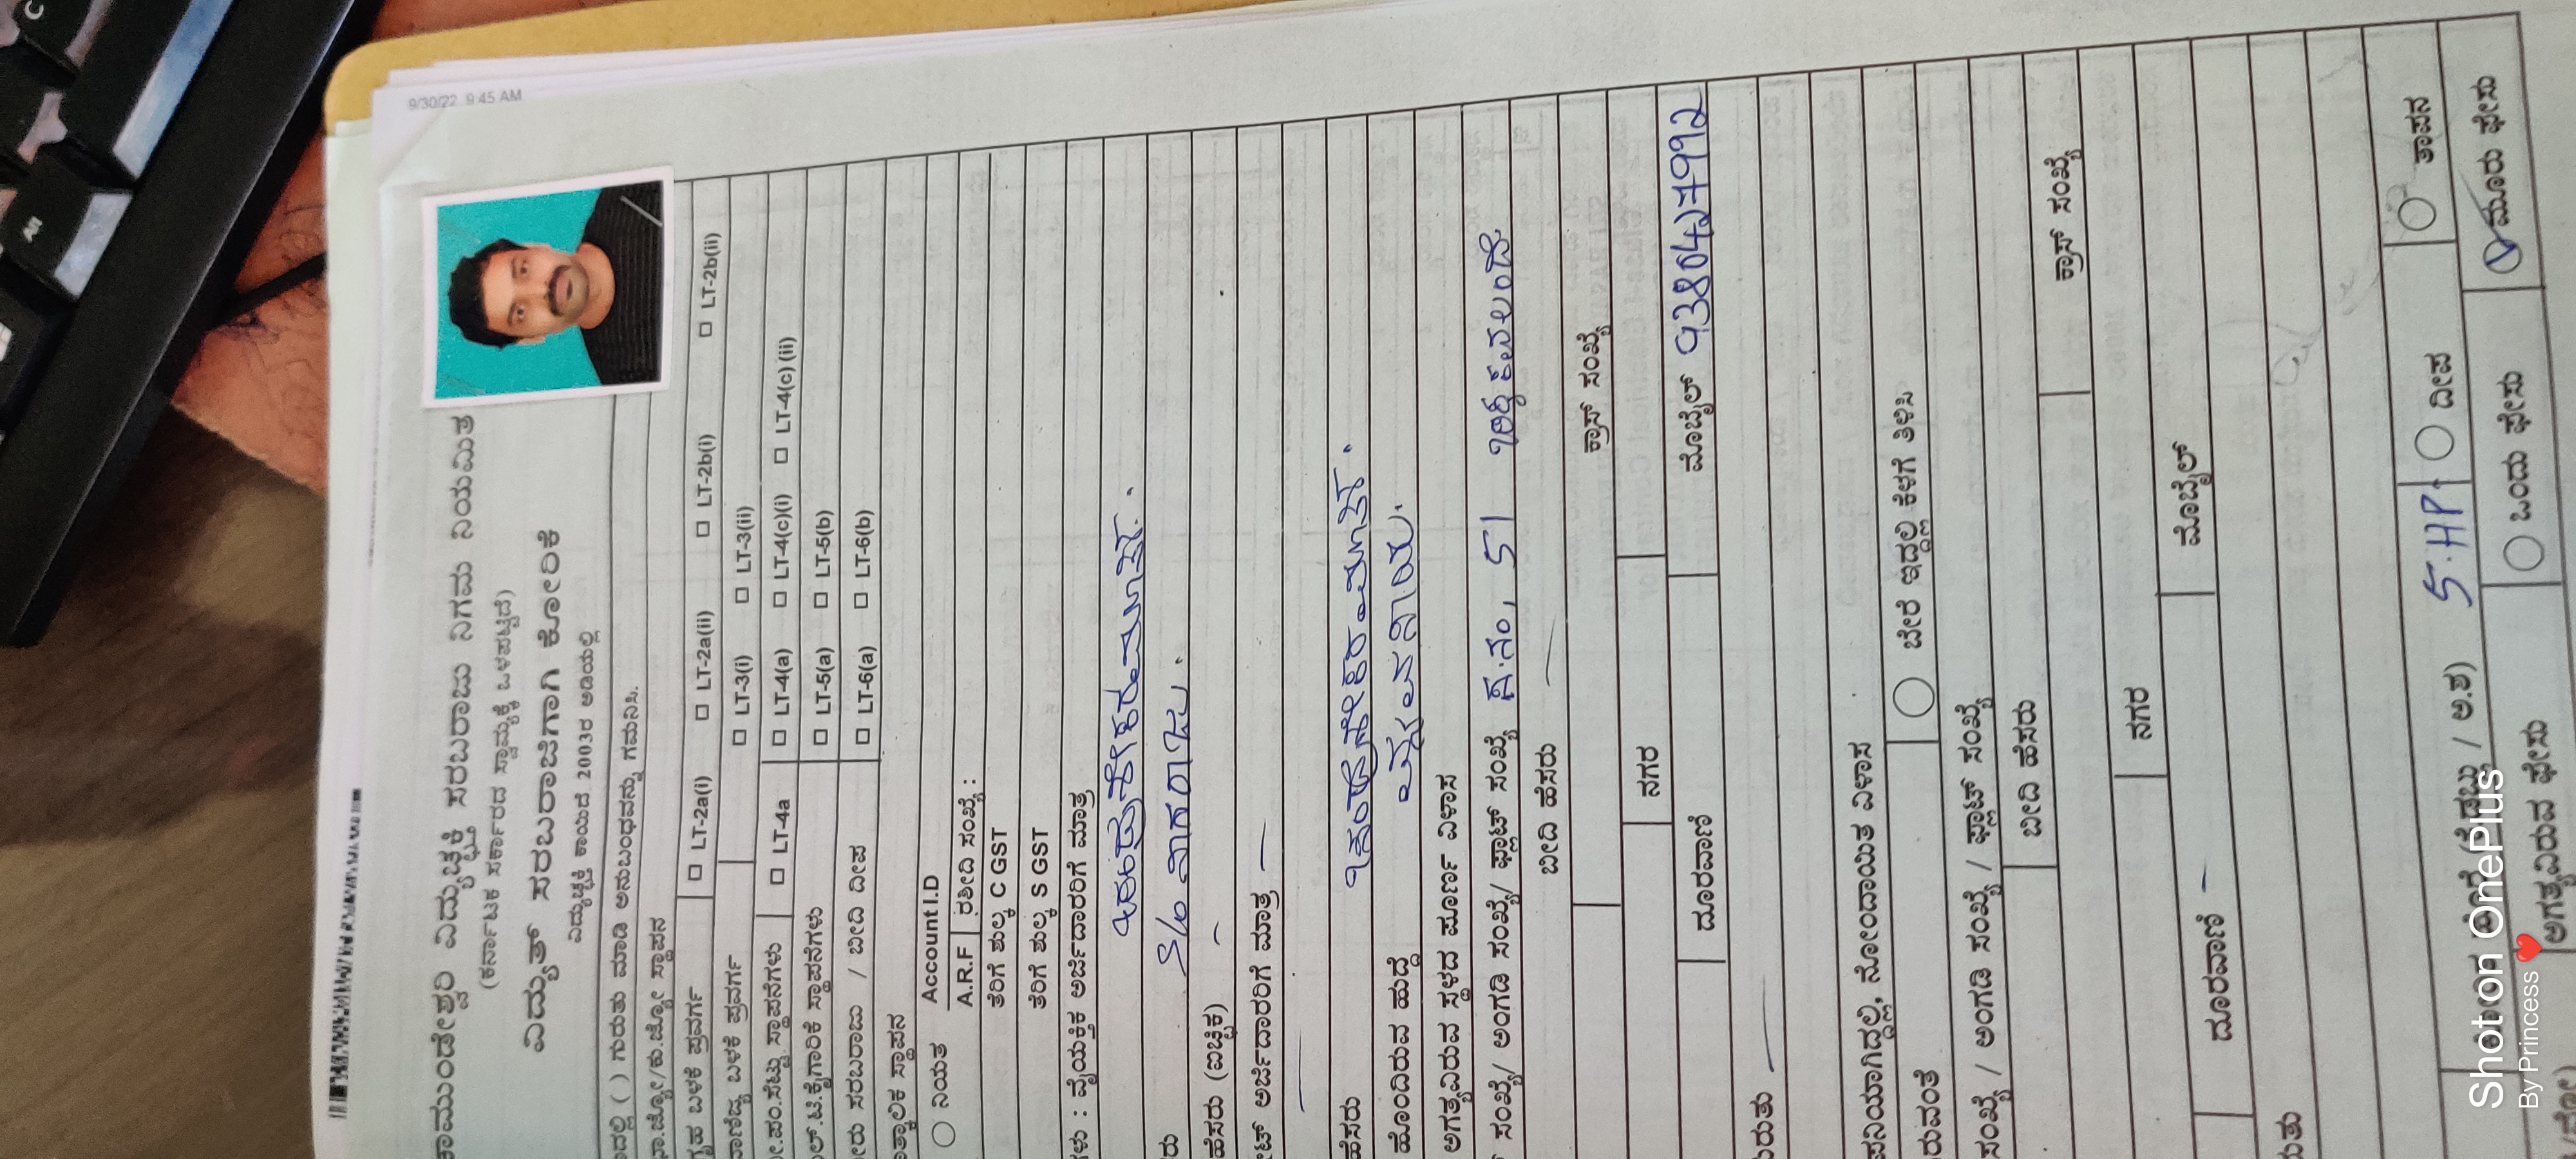 9/30/22 9:45 AM
ಚಾಮುಂಡೇಶ್ವರಿ ವಿದ್ಯುಚ್ಛಕ್ತಿ ಸರಬರಾಜು ನಿಗಮ ನಿಯಮಿತ
(ಕರ್ನಾಟಕ ಸರ್ಕಾರದ ಸ್ವಾಮ್ಯಕ್ಕೆ ಒಳಪಟ್ಟಿದೆ)
ವಿದ್ಯುತ್ ಸರಬರಾಜಿಗಾಗಿ ಕೋರಿಕೆ
ವಿದ್ಯುಚ್ಛಕ್ತಿ ಕಾಯಿದೆ 2003ರ ಅಡಿಯಲ್ಲಿ
( ) ಗುರುತು ಮಾಡಿ ಅನುಬಂಧವನ್ನು ಗಮನಿಸಿ.
ನಾ.ಜ್ಯೋ/ಕು.ಜ್ಯೋ ಸ್ಥಾಪನ
ಗೃಹ ಬಳಕೆ ಪ್ರವರ್ಗ LT-2a(i) LT-2a(ii) LT-2b(i) LT-2b(ii)
ವಾಣಿಜ್ಯ ಬಳಕೆ ಪ್ರವರ್ಗ LT-3(i) LT-3(ii)
ನೀ.ಪಂ.ಸೆಟ್ಟು ಸ್ಥಾಪನೆಗಳು LT-4a LT-4(a) LT-4(c)(i) LT-4(c) (ii)
ಎಲ್.ಟಿ.ಕೈಗಾರಿಕೆ ಸ್ಥಾಪನೆಗಳು LT-5(a) LT-5(b)
ನೀರು ಸರಬರಾಜು / ಬೀದಿ ದೀಪ LT-6(a) LT-6(b)
ತಾತ್ಕಾಲಿಕ ಸ್ಥಾಪನ
ನಿಯತ Account I.D
A.R.F ರಶೀದಿ ಸಂಖ್ಯೆ :
ತೆರಿಗೆ ಶುಲ್ಕ C GST
ತೆರಿಗೆ ಶುಲ್ಕ S GST
: ವೈಯಕ್ತಿಕ ಅರ್ಜಿದಾರರಿಗೆ ಮಾತ್ರ
S/o ನಾಗರಾಜು.
ಹೆಸರು (ಐಚ್ಛಿಕ) –
ಅರ್ಜಿದಾರರಿಗೆ ಮಾತ್ರ —
ಹೆಸರು
ಹೊಂದಿರುವ ಹುದ್ದೆ
ಅಗತ್ಯವಿರುವ ಸ್ಥಳದ ಪೂರ್ಣ ವಿಳಾಸ
ಸಂಖ್ಯೆ/ ಅಂಗಡಿ ಸಂಖ್ಯೆ/ ಫ್ಲಾಟ್ ಸಂಖ್ಯೆ ಸ.ನಂ, 51
ಬೀದಿ ಹೆಸರು —
ಕ್ರಾಸ್ ಸಂಖ್ಯೆ
ನಗರ
ದೂರವಾಣಿ ಮೊಬೈಲ್ 9380427992
ನೋಂದಾಯಿತ ವಿಳಾಸ
ಬೇರೆ ಇದ್ದಲ್ಲಿ ಕೆಳಗೆ ತಿಳಿಸಿ
ಸಂಖ್ಯೆ / ಅಂಗಡಿ ಸಂಖ್ಯೆ / ಫ್ಲಾಟ್ ಸಂಖ್ಯೆ
ಬೀದಿ ಹೆಸರು ಕ್ರಾಸ್ ಸಂಖ್ಯೆ
ನಗರ
ದೂರವಾಣಿ – ಮೊಬೈಲ್
/ ಅ.ಶ) 5.HP ದೀಪ ತಾಪನ
ಅಗತ್ಯವಿರುವ ಫೇಸು ಒಂದು ಫೇಸು ಮೂರು ಫೇಸು
Shot on OnePlus
By Princess ❤️